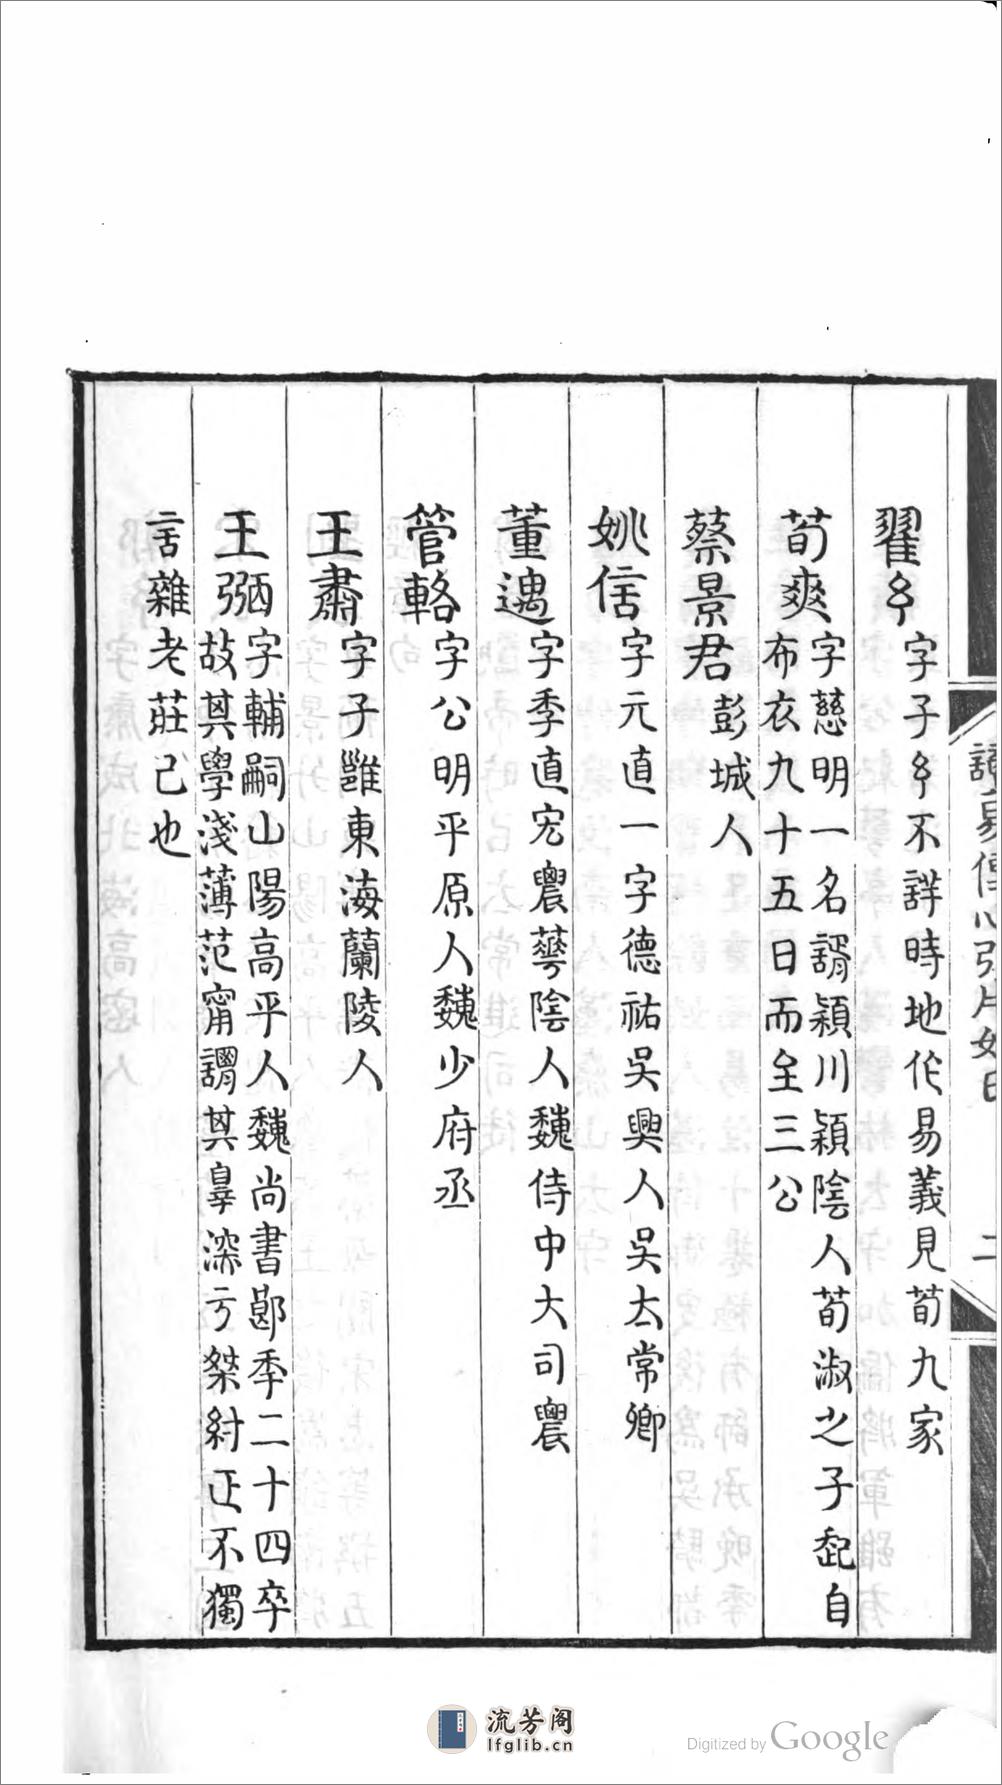 翟𢆯字子𢆯不詳時地作易義見荀九家
荀爽字慈明一名諝穎川穎陰人荀淑之子起自
布衣九十五日而至三公
蔡景君彭城人
姚信字元直一字德祐吳興人吳太常卿
董遇字季直宏農華陰人魏侍中大司農
管輅字公明平原人魏少府丞
王肅字子雝東海蘭陵人
王弼字輔嗣山陽高平人魏尚書郎季二十四卒
故其學淺薄范甯謂其辠深亏桀紂正不獨
言雜老莊已也
讀易傳心
二
流芳阁
lfglib.cn
Digitized by Google